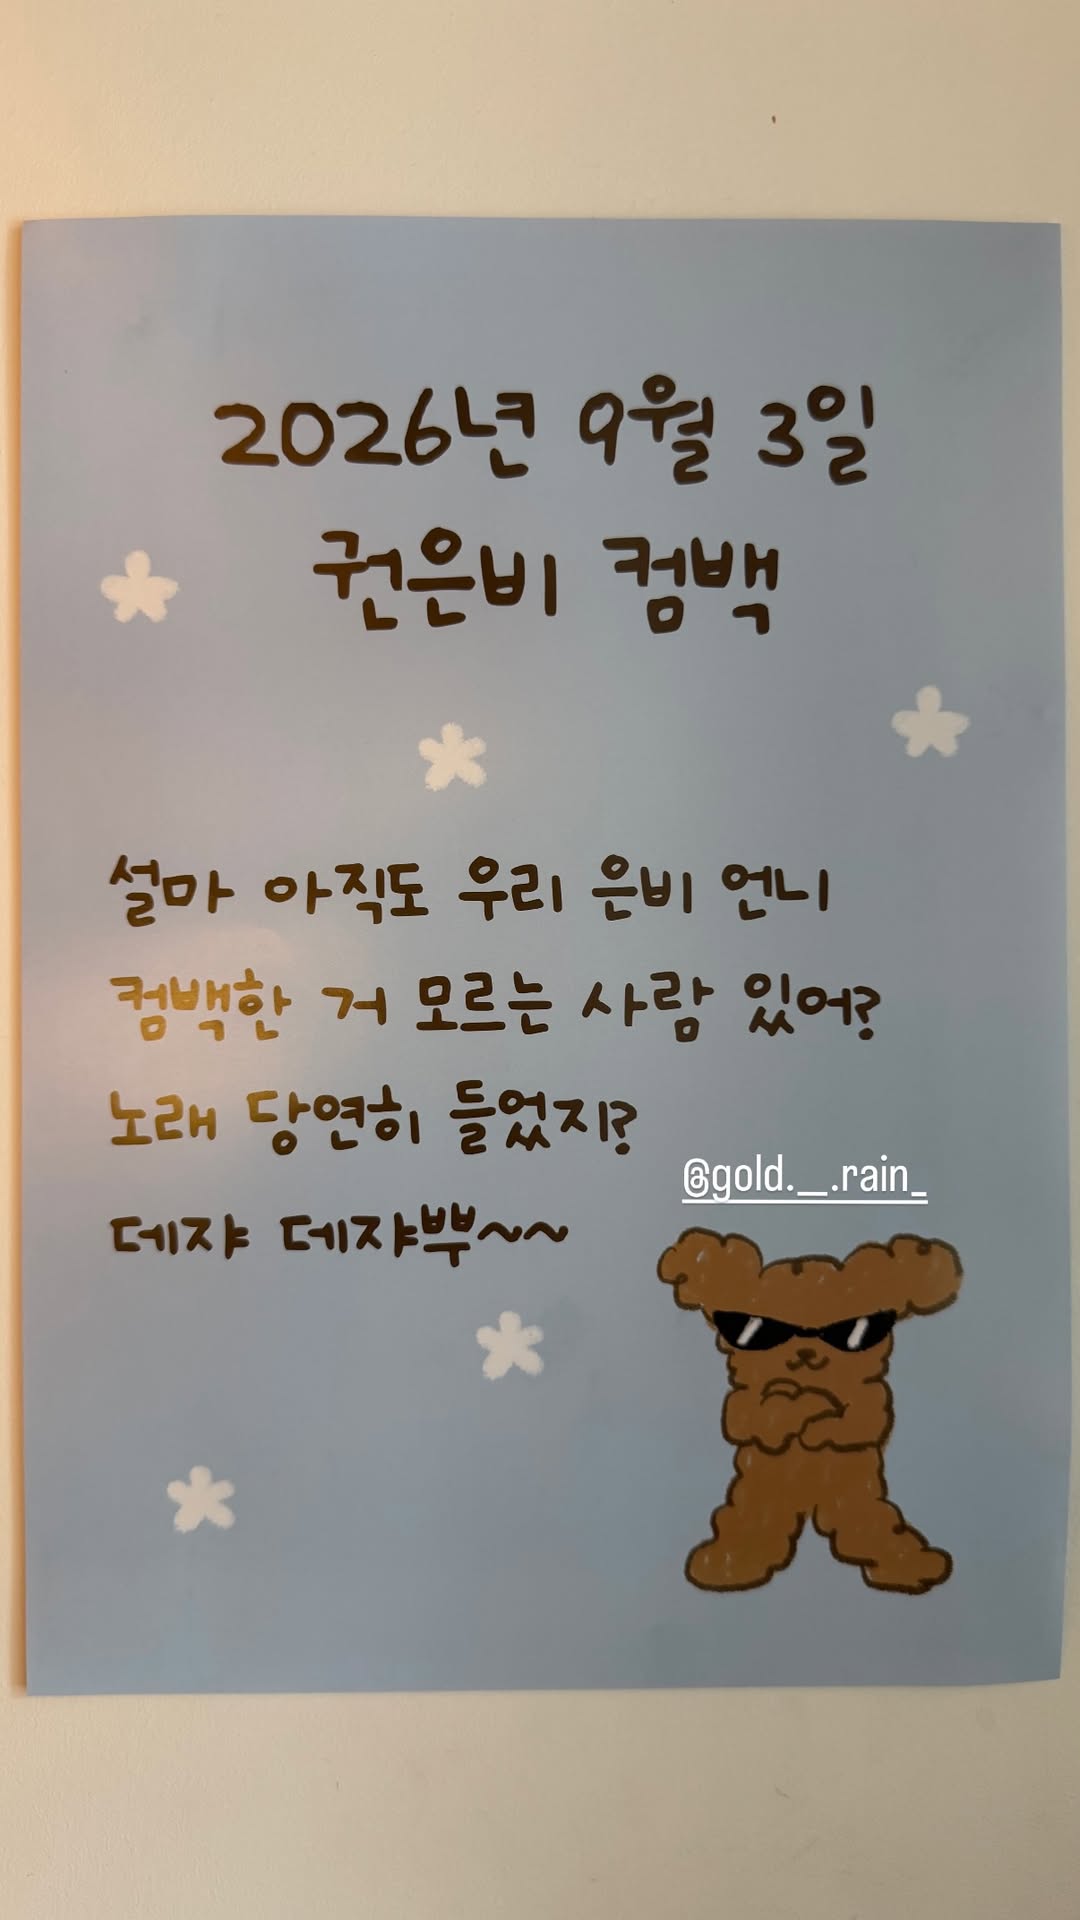 2026년 9월 3일
권은비 컴백
설마 아직도 우리 은비 언니
컴백한 거 모르는 사람 있어?
노래 당연히 들었지?
@gold._.rain_
데쟈 데쟈뿌~~